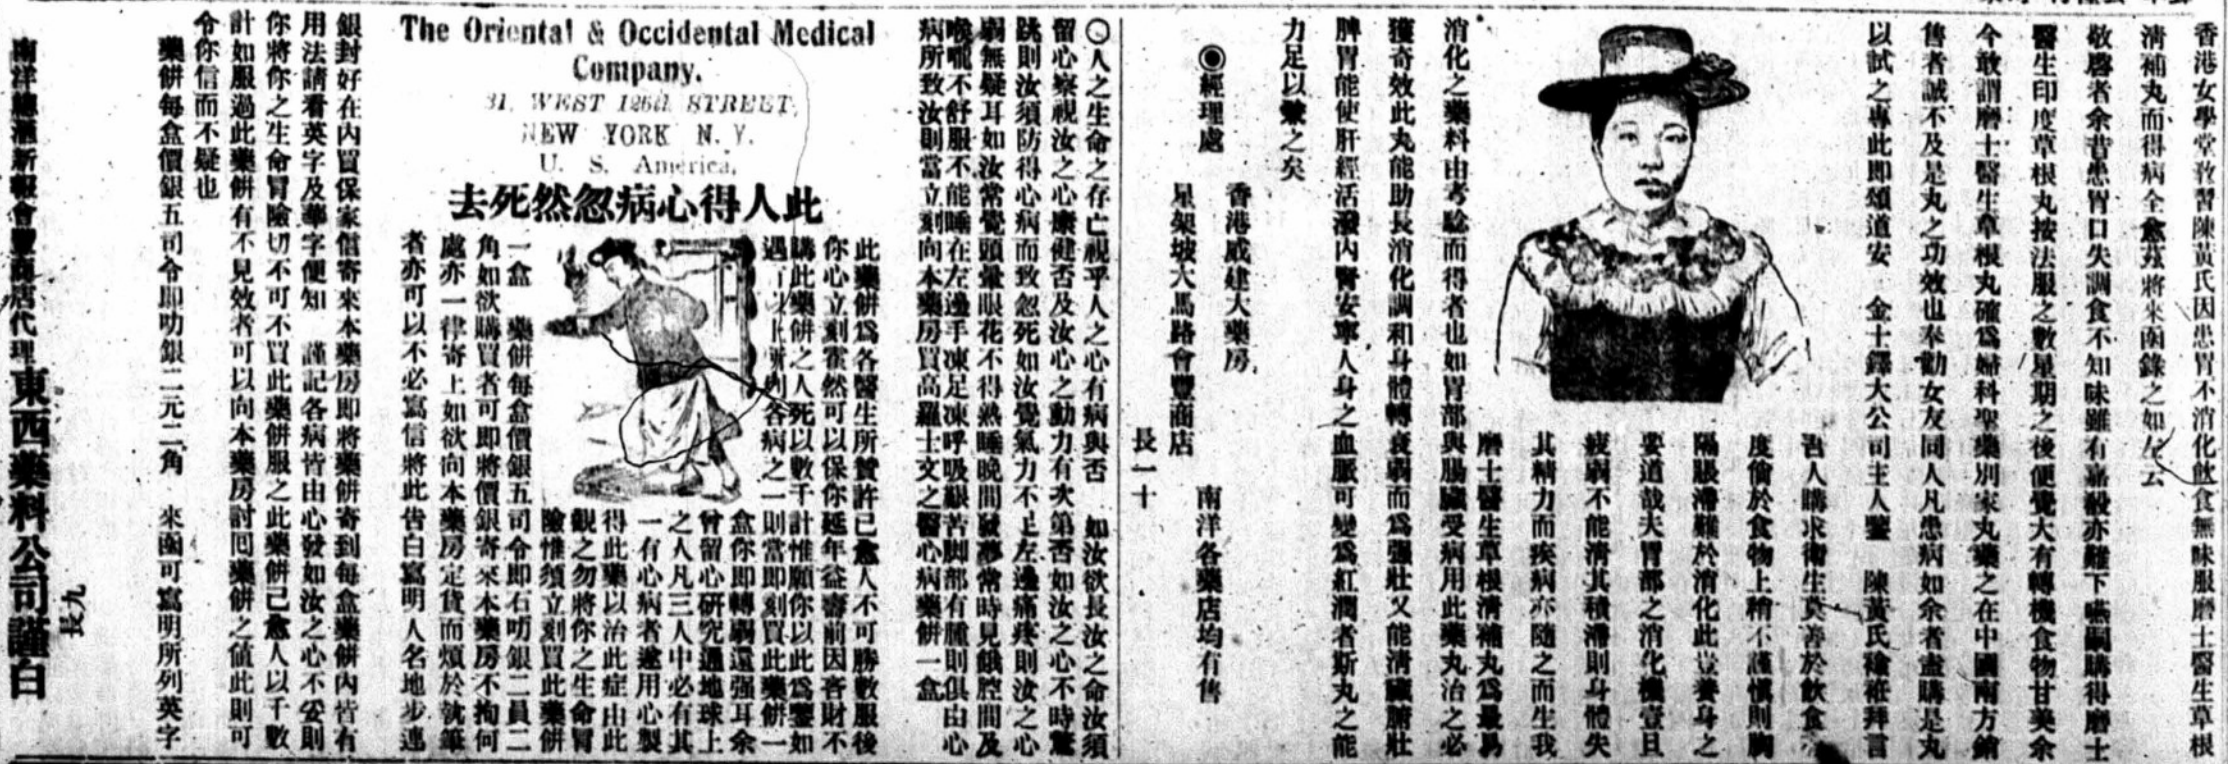 香港女學堂敎習陳黃氏因患胃不消化飲食無味服磨士醫生草根
淸補丸而得病全愈茲將來函錄之如左云
敬啓者余昔患胃口失調食不知味雖有嘉殽亦難下嚥嗣購得磨士
醫生印度草根丸按法服之數星期之後便覺大有轉機食物甘美余
今敢謂磨士醫生草根丸確爲婦科聖藥別家丸藥之在中國南方銷
售者誠不及是丸之功效也奉勸女友同人凡患病如余者盍購是丸
以試之專此即頌道安 金十鐸大公司主人鑒 陳黃氏襝袵拜言
吾人購求衛生莫善於飲食
度倘於食物上稍不謹愼則胸
隔脹滯難於消化此豈養身之
要道哉夫胃部之消化機壹且
疲弱不能淸其積滯則身體失
其精力而疾病亦隨之而生我
磨士醫生草根淸補丸爲最易
消化之藥料由考驗而得者也如胃部與腸臟受病用此藥丸治之必
獲奇效此丸能助長消化調和身體轉衰弱而爲强壯又能淸臟腑壯
脾胃能使肝經活潑內腎安寧人身之血脈可變爲紅潤者斯丸之能
力足以繫之矣
◉經理處
香港威建大藥房
星架坡大馬路會豐商店
南洋各藥店均有售
長一十
〇人之生命之存亡視乎人之心有病與否 如汝欲長汝之命汝須
留心察視汝之心康健否及汝心之動力有次第否如汝之心不時驚
跳則汝須防得心病而致忽死如汝覺氣力不足左邊痛疼則汝之心
弱無疑耳如汝常覺頭暈眼花不得熟睡晚間發夢常時見餓腔間及
喉嚨不舒服不能睡在左邊手凍足凍呼吸艱苦脚部有腫則俱由心
病所致汝則當立刻向本藥房買高羅士文之醫心病藥餅一盒
The Oriental & Occidental Medical
Company.
31, WEST 126th STREET,
NEW YORK N. Y.
U. S. America.
此人得心病忽然死去
此藥餅爲各醫生所贊許已愈人不可勝數服後
你心立刻霍然可以保你延年益壽前因吝財不
購此藥餅之人死以數千計惟願你以此爲鑒如
遇有以上所列各病之一則當即刻買此藥餅一
盒你即轉弱還强耳余
曾留心研究過地球上
之人凡三人中必有其
一有心病者遂用心製
得此藥以治此症由此
觀之勿將你之生命冒
險惟須立刻買此藥餅
一盒 藥餅每盒價銀五司令即石叻銀二員二
角如欲購買者可即將價銀寄來本藥房不拘何
處亦一律寄上如欲向本藥房定貨而煩於執筆
者亦可以不必寫信將此告白寫明人名地步連
銀封好在內買保家信寄來本藥房即將藥餅寄到每盒藥餅內皆有
用法請看英字及華字便知 謹記各病皆由心發如汝之心不妥則
你將你之生命冒險切不可不買此藥餅服之此藥餅已愈人以千數
計如服過此藥餅有不見效者可以向本藥房討囘藥餅之値此則可
令你信而不疑也
藥餅每盒價銀五司令即叻銀二元二角 來函可寫明所列英字
南洋總滙新報會豐商店代理東西藥料公司謹白
長九